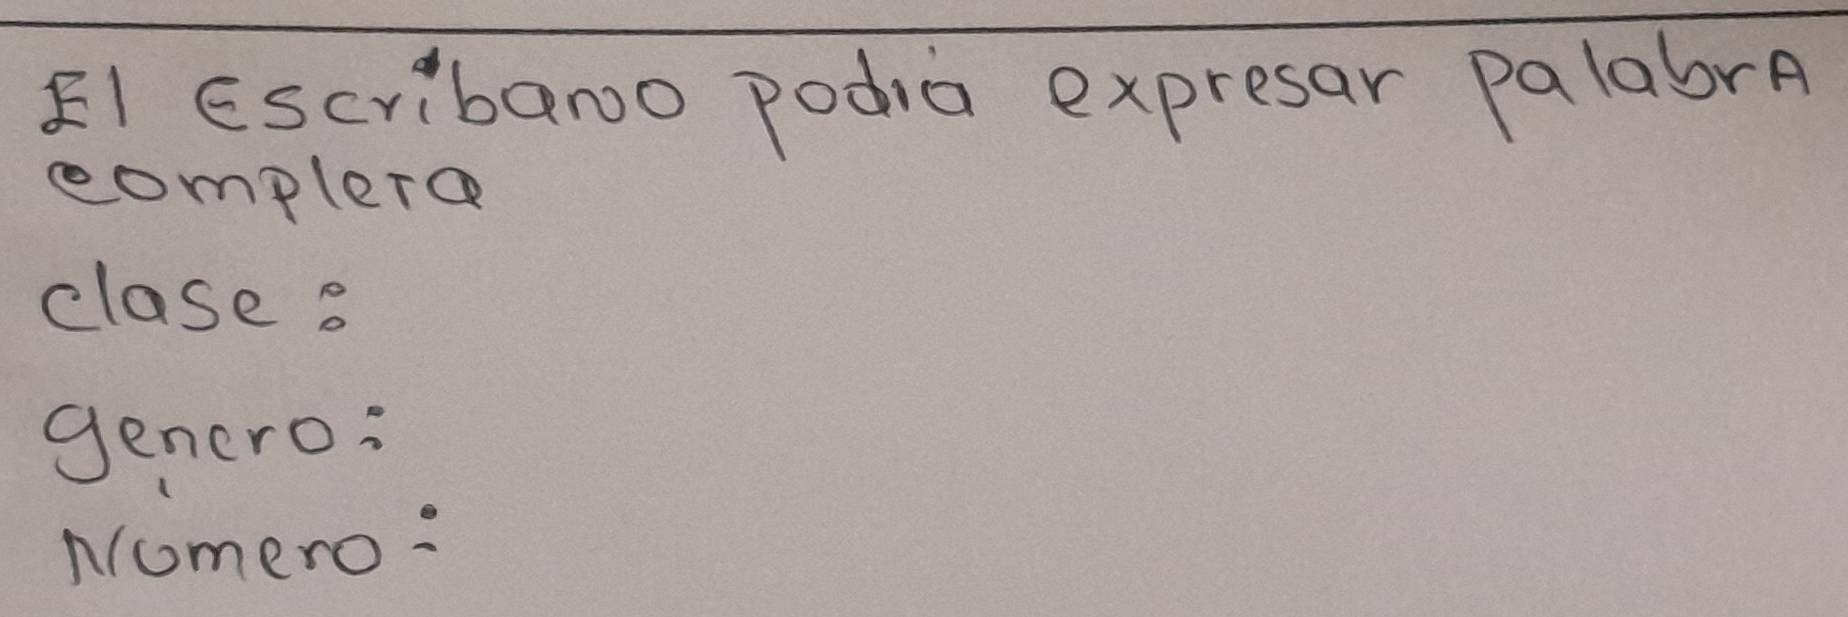 El Escribano podía expresar palabrA
completa
clase:
genero:
Número: